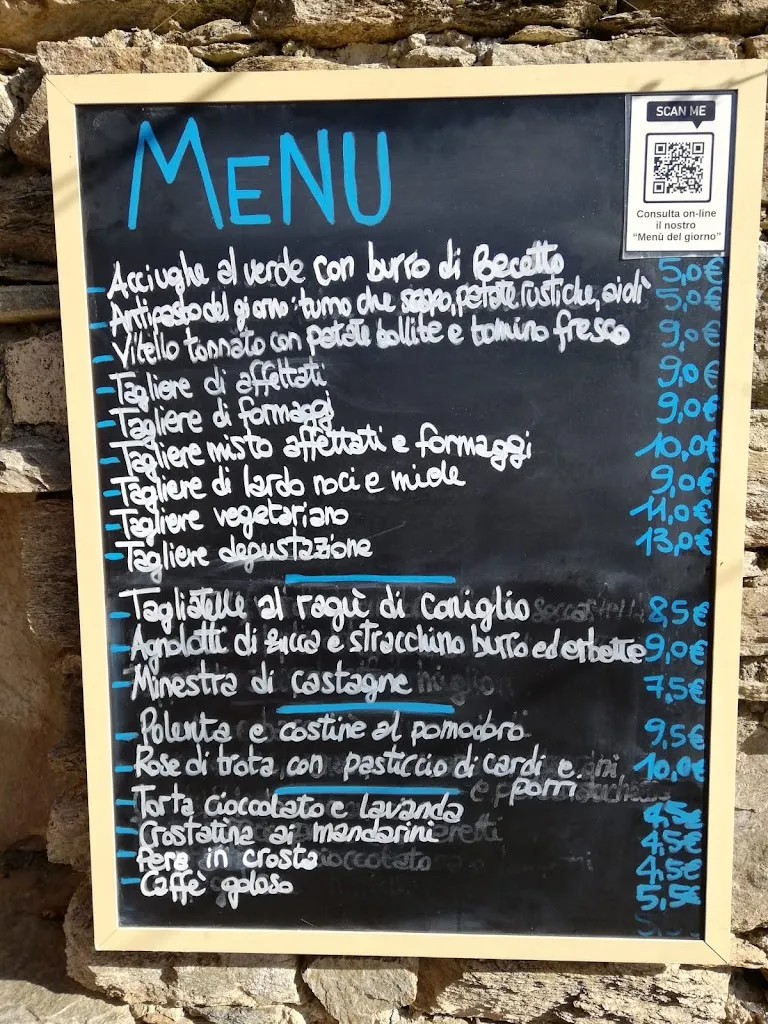 MENU
SCAN ME
Consulta on-line
il nostro
"Menù del giorno"
- Acciughe al verde con burro di Beccetto 5,0€
- Antipasto del giorno: tumo che sappo, patate rustiche, aiolì 5,0€
- Vitello tonnato con patate bollite e tomino fresco 9,0€
- Tagliere di affettati 9,0€
- Tagliere di formaggi 9,0€
- Tagliere misto affettati e formaggi 10,0€
- Tagliere di lardo noci e miele 9,0€
- Tagliere vegetariano 11,0€
- Tagliere degustazione 13,0€
- Tagliatelle al ragù di Coniglio 8,5€
- Agnolotti di zucca e stracchino burro ed erbette 9,0€
- Minestra di castagne 7,5€
- Polenta e costine al pomodoro 9,5€
- Rose di trota con pasticcio di cardi e 10,0€
porri
- Torta cioccolato e lavanda 4,5€
- Crostatina ai mandarini 4,5€
- Pera in crosta 4,5€
- Caffè goloso 5,5€